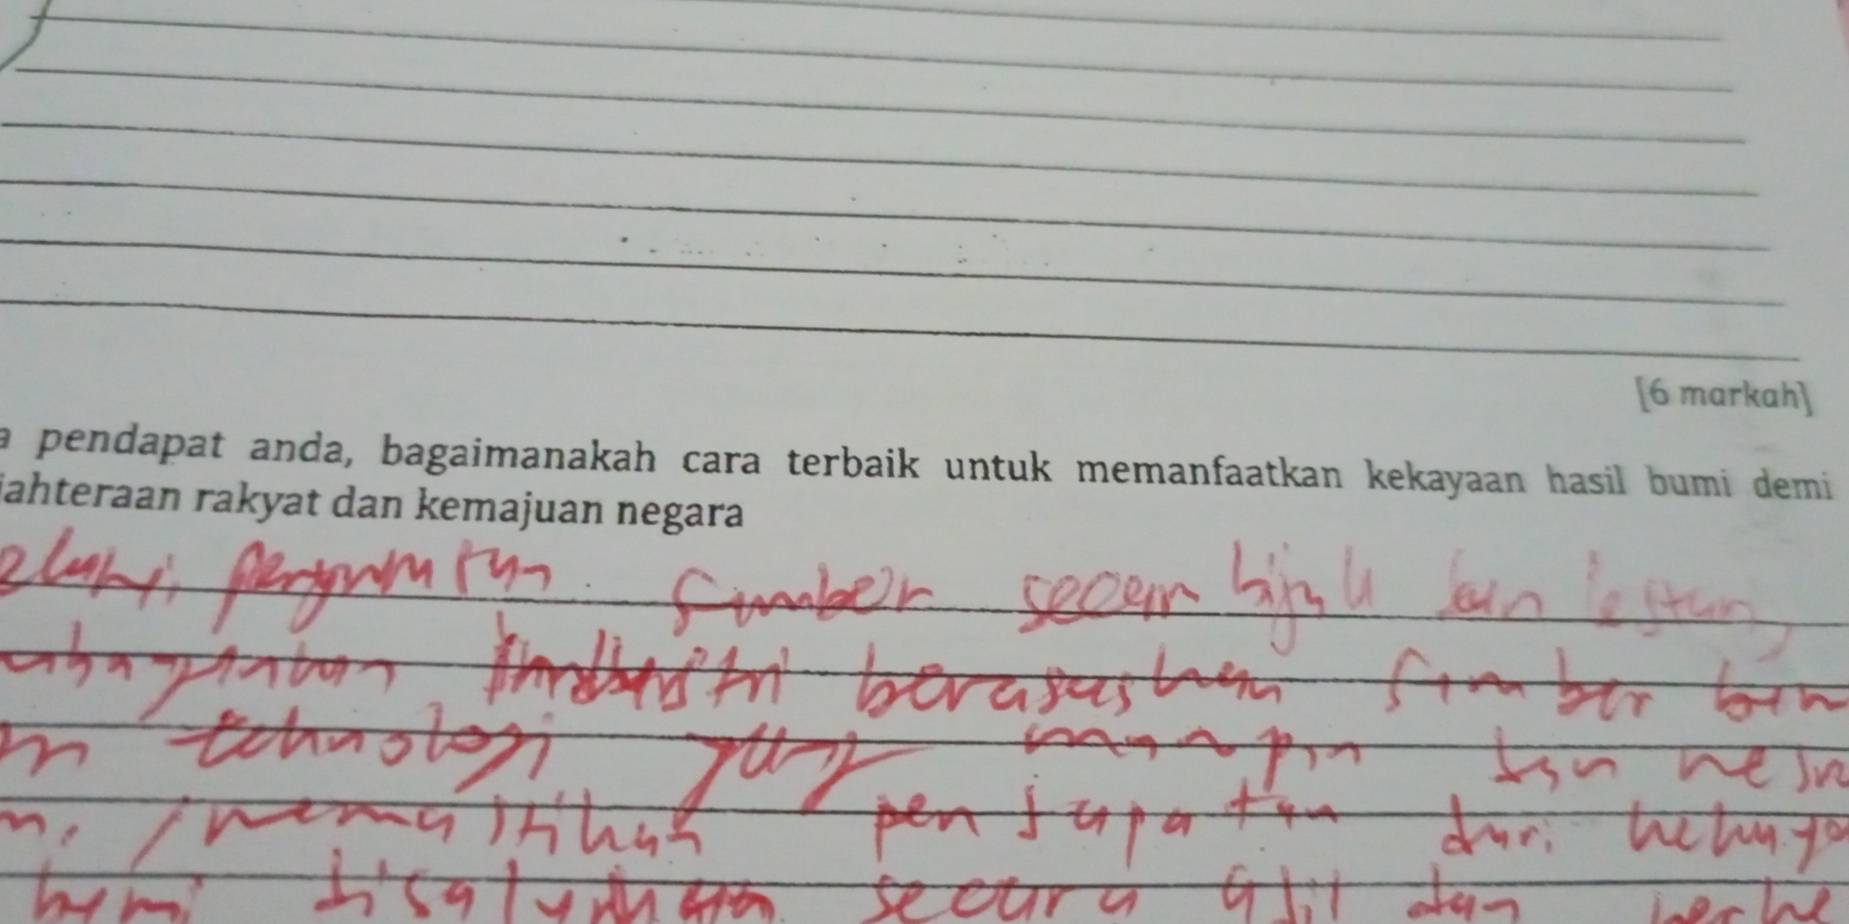 [6 markah]
pendapat anda, bagaimanakah cara terbaik untuk memanfaatkan kekayaan hasil bumi demi
jahteraan rakyat dan kemajuan negara
sumber secara bijak dan lestari,
industri berasaskan sumber bum
teknologi yang
memastikan pendapatan dari kekaya
bumi disalurkan secara adil dan berke